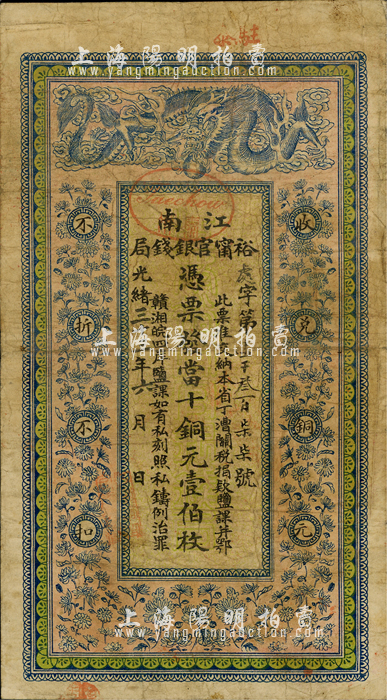 上海陽明拍賣
www.yangmingauction.com
江南
裕甯官銀錢局
收兌銅元
不折不扣
字第
千叁百柒柒號
此票准
納本省丁漕關稅捐款鹽課并鄂
憑票
當十銅元壹伯枚
贛湘皖四
鹽課如有私刻照私鑄例治罪
光緒三
年六月 日
上海陽明拍賣
www.yangmingauction.com
上海陽明拍賣
www.yangmingauction.com